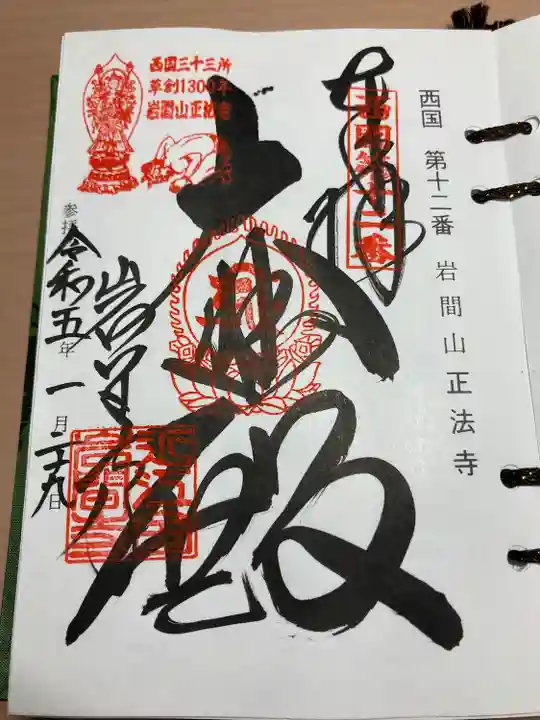 西国 第十二番 岩間山正法寺
奉拝
西国第十二番
大悲殿
西国三十三所
草創1300年
岩間山正法寺
岩間寺
参拝 令和五年一月二十九日